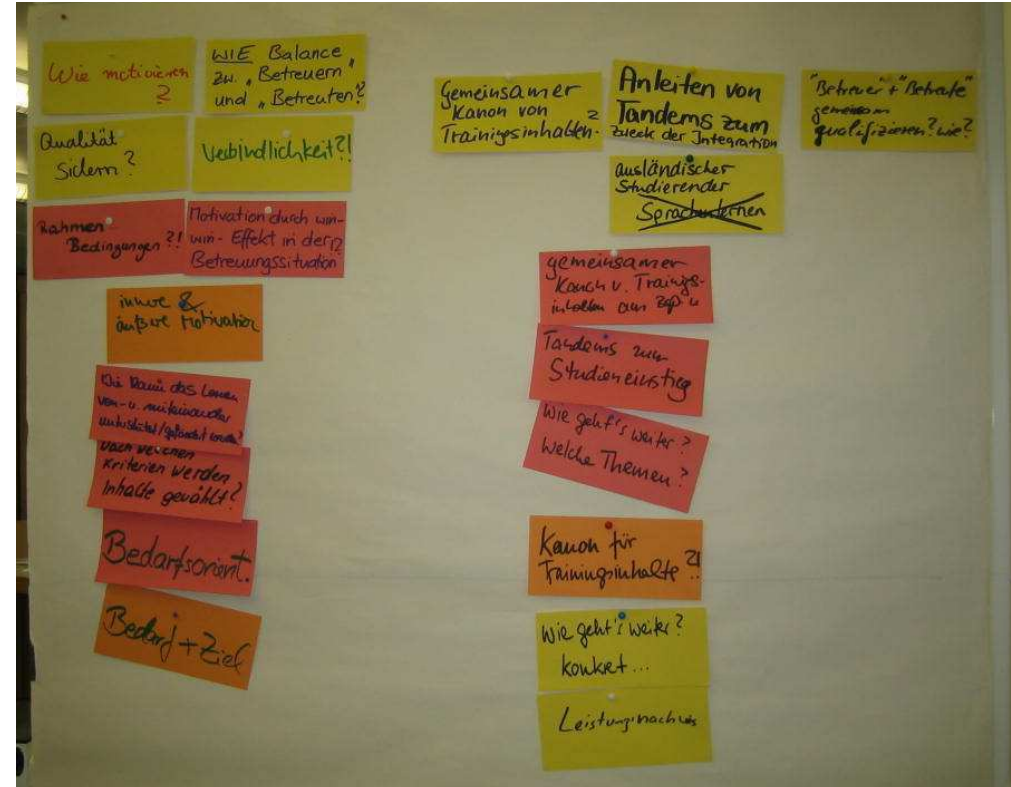 Wie motivieren
?
WIE Balance
zw. "Betreuern"
und "Betreuten?"
Qualität
Sichern?
Verbindlichkeit?!
Rahmen
Bedingungen?!
Motivation durch win-
win-Effekt in der
Betreuungssituation
innere &
äußere Motivation
Wie kann das Lernen
von- u. miteinander
unterstützt/gefördert werden?
Nach welchen
Kriterien werden
Inhalte gewählt?
Bedarfsorient.
Bedarf + Ziel
Gemeinsamer
Kanon von
Trainingsinhalten?
Anleiten von
Tandems zum
Zweck der Integration
ausländischer
Studierender
Sprachenlernen
"Betreuer" + "Betreute"
gemeinsam
qualifizieren? wie?
gemeinsamer
Kanon v. Trainings-
inhalten
Tandems zum
Studieneinstieg
Wie geht's weiter?
Welche Themen?
Kanon für
Trainingsinhalte?!
Wie geht's weiter?
konkret...
Leistungsnachweis